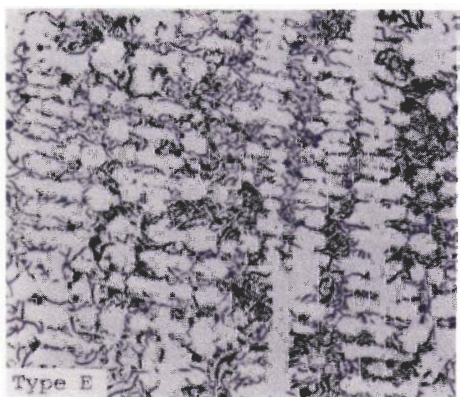 Type E